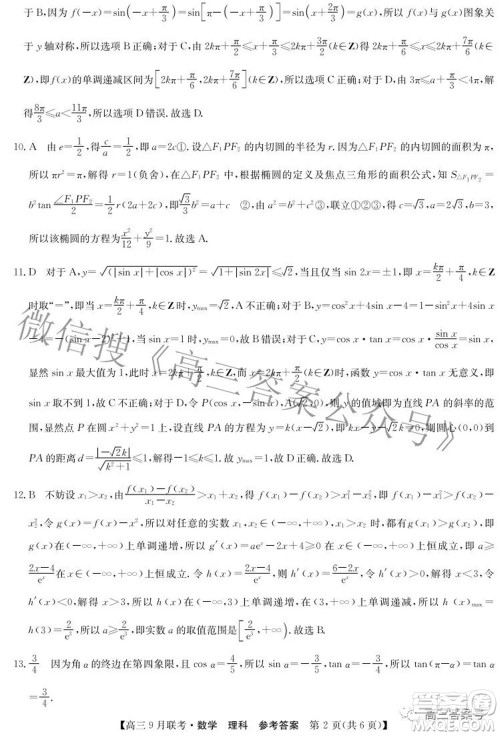 于 B,因为 f(-x)=sin(-x+π/3)=sin[π-(-x+π/3)]=sin(x+2π/3)=g(x),所以 f(x)与 g(x)图象关
于 y 轴对称,所以选项 B 正确;由 2kπ+π/2≤x+π/3≤2kπ+3π/2(k∈Z)得 2kπ+π/6≤x≤2kπ+7π/6(k∈
Z),即 f(x)的单调递减区间为[2kπ+π/6,2kπ+7π/6](k∈Z),
得8π/3≤a<11π/3,所以选项 D 错误.故选 D.
10. A 由 e=1/2,得c/a=1/2,即 a=2c①.设△F₁PF₂ 的内切圆的半径为 r.因为△F₁PF₂ 的内切圆的面积为π,
所以 πr²=π,解得 r=1(负舍),在△F₁PF₂ 中,根据椭圆的定义及焦点三角形的面积公式,知 S△F₁PF₂=
b²tan∠F₁PF₂/2=1/2r(2a+2c),即√3/3b²=a+c ②,联立①②得 c=√3,a=2√3,b=3,
所以该椭圆的方程为x²/12+y²/9=1.故选 A.
11. D 对于 A,y=√(|sin x|+|cos x|)²=√1+|sin 2x|≤√2,当且仅当 sin 2x=±1,即当 x=kπ/2+π/4,k∈Z
时取"=",即当 x=kπ/2+π/4,k∈Z 时,y_max=√2,A 不正确;对于 B,y=cos²x+4sin x-4=1-sin²x+4sin x-4
=-(sin x-2)²+1,当 sin x=1 时,y_max=0,所以 B 错误;对于 C,y=cos x·tan x=cos x·sin x/cos x=sin x,
显然 sin x 最大值为 1,此时 x=π/2+2kπ,k∈Z,而 x=π/2+2kπ(k∈Z)时,函数 y=cos x·tan x 无意义,即
sin x 取不到 1,故 C 不正确;对于 D,令 P(cos x,-sin x),A(√2,0),则 y 的值域即为直线 PA 的斜率的范
围,显然点 P 在圆 x²+y²=1 上,设直线 PA 的方程为 y=k(x-√2),即 kx-y-√2k=0,则圆心(0,0)到
PA 的距离 d=|-√2k|/√k²+1≤1,解得-1≤k≤1.故 y_max=1.故选 D.
12. B 不妨设 x₁>x₂,由f(x₁)-f(x₂)/x₁-x₂>x₁+x₂,得 f(x₁)-f(x₂)>x₁²-x₂²,即 f(x₁)-x₁²>f(x₂)-
x₂²,令 g(x)=f(x)-x²,所以对任意的实数 x₁,x₂∈(-∞,+∞),x₁>x₂时,都有 g(x₁)>g(x₂),即
g(x)在(-∞,+∞)上单调递增,所以 g'(x)=aeˣ-2x+4≥0 在 x∈(-∞,+∞)上恒成立,即 a≥
2x-4/eˣ在 x∈(-∞,+∞)上恒成立.令 h(x)=2x-4/eˣ,则 h'(x)=6-2x/eˣ,令 h'(x)>0,解得 x<3,令
h'(x)<0,解得 x>3,所以 h(x)在(-∞,3)上单调递增,在(3,+∞)上单调递减,所以 h(x)max=
h(3)=2/e³,所以 a≥2/e³,即实数 a 的取值范围是[2/e³,+∞).故选 B.
13. 3/4 因为角 α 的终边在第四象限,且 cos α=4/5,所以 sin α=-3/5,所以 tan α=-3/4,所以 sin αtan α-
=3/4.
【高三 9 月联考·数学 理科 参考答案 第 2 页(共 6 页)】
微信搜《高三答案公众号》
高三答案号